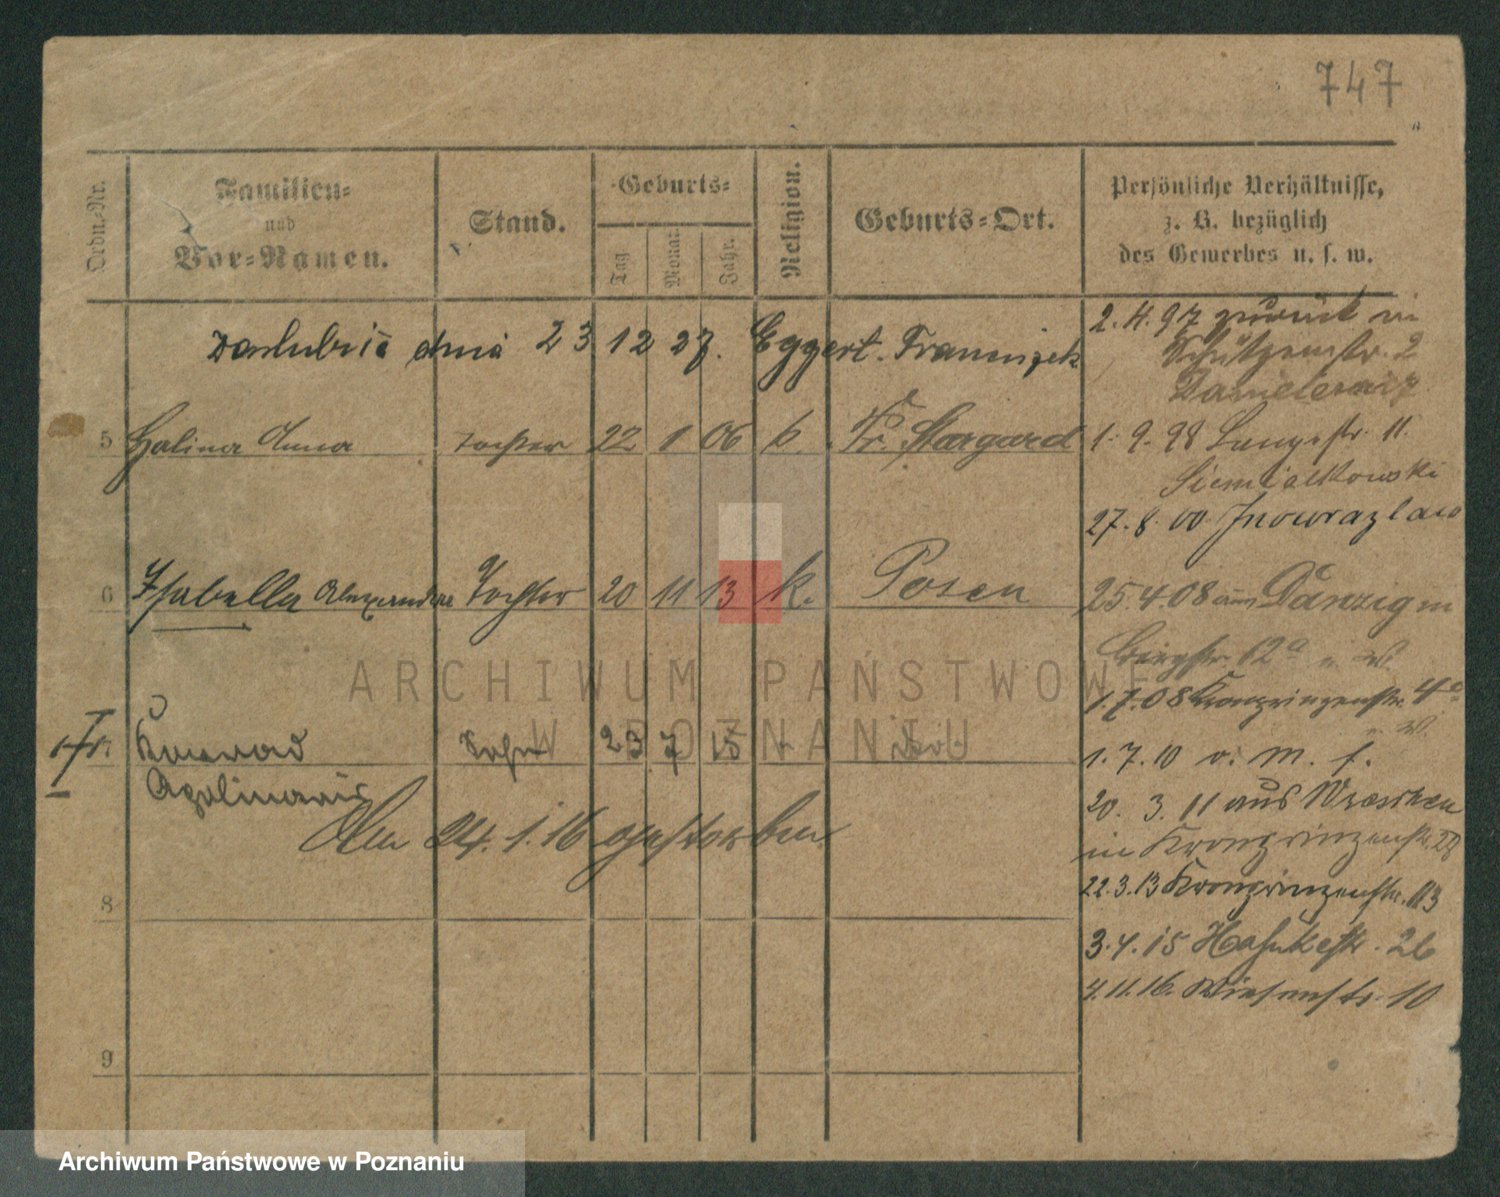 747
Ordn.-Nr.
Familien-
und
Vor-Namen.
Stand.
Geburts-
Tag
Monat
Jahr.
Religion.
Geburts-Ort.
Persönliche Verhältnisse,
z. B. bezüglich
des Gewerbes u. s. w.
dnia 23 12 27. Eggert. Franciszek
5 Halina Anna Tochter 22 1 06 k. Pr. Stargard
6 Isabella Alexandra Tochter 20 11 13 k. Posen
Konrad Sohn 23 7 15
Apolinaris
Am 24. 1. 16 gestorben
8
9
2. 4. 97 zurück in
Schützenstr. 2
1. 9. 98 Langestr. 11.
Siemiatkowski
27. 8. 00 Inowrazlaw
25. 4. 08 aus Danzig in
Bergstr. 12a
1. 7. 08 Kronprinzenstr. 4a
1. 7. 10 v. M. f.
20. 3. 11 aus Wreschen
in Kronprinzenstr. 28
22. 3. 13 Kronprinzenstr. 113
3. 4. 15 26
4. 11. 16. Wiesenstr. 10
ARCHIWUM PAŃSTWOWE
W POZNANIU
Archiwum Państwowe w Poznaniu